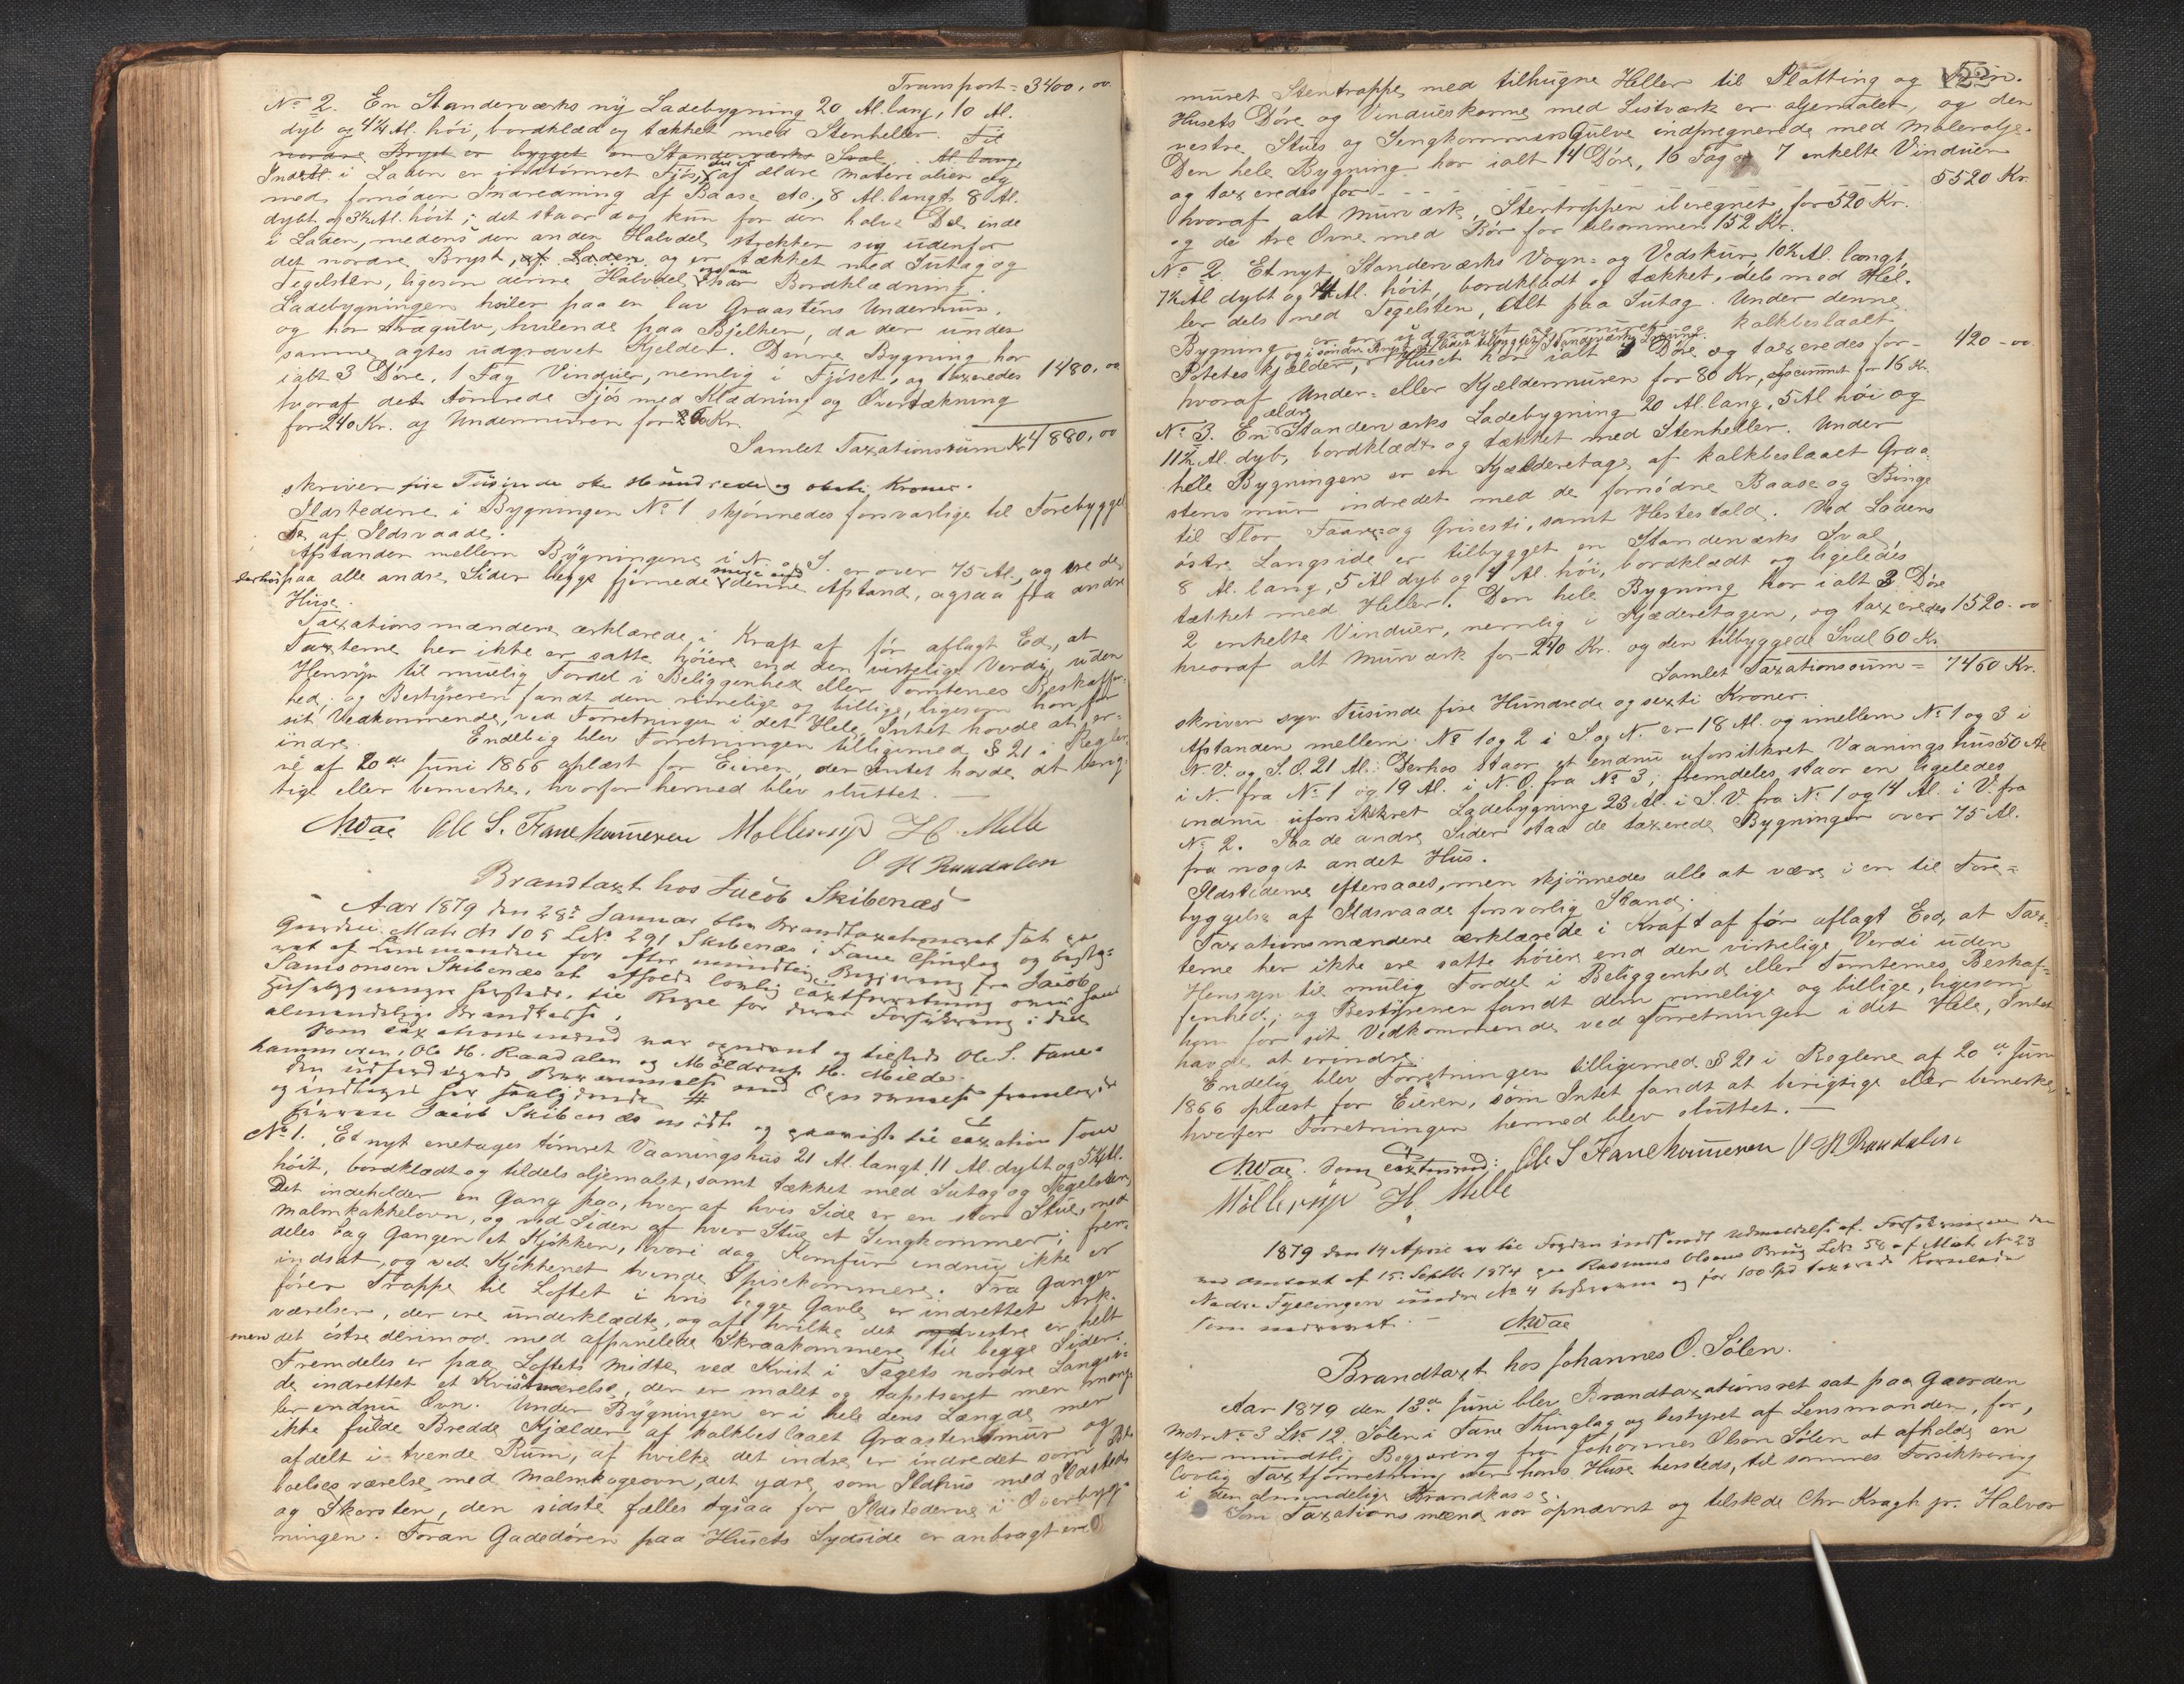 Transport = 3400,00
No 2. En Standerværks ny Ladebygning 20 Al. lang, 10 Al.
dyb og 4¼ Al. høi, bordklæd og tækket med Stenheller. Til
nordre Bryst er bygget en Standerværks Sval, . Al. lang,
Indtil i Laden er indtømret Fjøs, af ældre Materialier og
med fornøden Indredning af Baase etc., 8 Al. langt 8 Al.
dybt og 3½ Al. høit; det staar dog kun for den halve Del inde
i Laden, medens den anden Halvdel strækker sig udenfor
det nordre Bryst, af Laden og er tækket med Sutag og
Tegelsten, ligesom denne Halvdel ogsaa har Bordklædning.
Ladebygningen hviler paa en lav Graastens Undermur,
og har Trægulv, hvilende paa Bjelker, da der under
samme agtes udgravet Kjelder. Denne Bygning har
ialt 3 Døre, 1 Fag Vinduer, nemlig i Fjøset, og taxeredes 1480,00
hvoraf det tømrede Fjøs med Klædning og Overtækning
for 240 Kr. og Undermuren for 20 Kr.
Samlet Taxationssum Kr 4880,00
skriver fire Tusinde otte Hundrede og otteti Kroner.
Ildstederne i Bygningen No 1 skjønnedes forsvarlige til Forebyggel-
se af Ildsvaade.
Afstanden mellem Bygningerne i N. og S. er over 75 Al., og ere de
derhos paa alle andre Sider begge fjernede mere end denne Afstand, ogsaa fra andre
Huse.
Taxationsmændene erklærede i Kraft af før aflagt Ed, at
Taxterne her ikke er satte høiere end den virkelige Verdi, uden
Hensyn til muelig Fordel i Beliggenhed eller Tomternes Beskaffen-
hed, og Bestyreren fandt dem rimelige og billige, ligesom han for
sit Vedkommende, ved Forretningen i det Hele, Intet havde at er-
indre. Endelig blev Forretningen tilligemed § 21 i Regler-
ne af 20de Juni 1866 oplæst for Eieren, der Intet havde at berig-
tige eller bemerke, hvorfor hermed blev sluttet. —
Ole S. Fanehammeren Møllerup H. Milde
O H Raadalen
Brandtaxt hos Jacob Skibenæs
Aar 1879 den 28de Januar blev Brandtaxationsret sat paa
Gaarden Matr No 105 LNo 291 Skibenæs i Fane Thinglag og besty-
ret af Lensmanden for efter mundtlig Begjæring fra Jacob
Samsonsen Skibenæs at afholde lovlig Taxtforretning over hans
Husebygninger hersteds, til Brug for deres Forsikkring i den
almindelige Brandkasse.
Som Taxationsmænd var opnævnt og tilstede Ole S. Fane-
hammeren, Ole H. Raadalen og Møldrup H. Milde.
Den udfærdigede Berammelse med Opnævnelse fremlagdes
og indtages her saalydende #
Eieren Jacob Skibenæs mødte og paaviste til Taxation som
No 1. Et nyt enetages tømret Vaaningshus 21 Al. langt, 11 Al. dybt og 5½ Al.
høit, bordklædt og tildels oljemalet, samt tækket med Sutag og Tegelsten,
Det indeholder en Gang paa, hver af hvis Side er en stor Stue, med
Malmkakkelovn, og ved Siden af hver Stue et Sengkammer; frem-
deles bag Gangen et Kjøkken, hvori dog Komfur endnu ikke er
indsat, og ved Kjøkkenet tvende Spisekammere. Fra Gangen
fører Trappe til Loftet i hvis begge Gavle er indrettet Ark-
værelser, der ere underklædte, og af hvilke det vestre er helt
men det østre derimod med affanelede Skraakommere til begge Sider.
Fremdeles er paa Loftets Midte ved Kvist i Tagets nordre Langsi-
de indrettet et Kvistværelse, der er malet og tapetseret men mang-
ler endnu Ovn. Under Bygningen er i hele dens Længde, men
ikke fulde Bredde Kjælder af kalkbeslaaet Graastensmur og
afdelt i tvende Rum, af hvilke det indre er indredet som Be-
boelsesværelse med Malmkogeovn, det ydre som Ildhus med Ildsted
og Skorsten, den sidste fælles ogsaa for Ildstederne i Overbyg-
ningen. Foran Gadedøren paa Husets Sydside er anbragt en
122
muret Stentrappe med tilhugne Heller til Platting og Trin.
Husets Døre og Vindueskarme med Listværk er oljemalet, og den
vestre Stues og Sengkammers Gulve indpregnerede med Malerolje.
Den hele Bygning har ialt 14 Døre, 16 Fag og 7 enkelte Vinduer
og taxeredes for - - - - - - - - - 5520 Kr.
hvoraf alt Murværk, Stentrappen iberegnet, for 520 Kr.
og de tre Ovne med Rør for tilsammen 152 Kr.
No 2. Et nyt Standerværks Vogn- og Vedskur, 10½ Al. langt,
7½ Al dybt og 4 Al. høit, bordklædt og tækket, dels med Hel-
ler dels med Tegelsten, Alt paa Sutag. Under denne
Bygning er en udgravet og muret og kalkbeslaaet
Poteteskjælder, og i søndre Bryst Huset har ialt 3 Døre og taxeredes for - 420-00
hvoraf Under- eller Kjældermuren for 80 Kr, for 16 Kr.
No 3. En ældre Standerværks Ladebygning 20 Al. lang, 5 Al høi og
11½ Al. dyb, bordklædt og tækket med Stenheller. Under
hele Bygningen er en Kjælderetage af kalkbeslaaet Graa-
stensmur indredet med de fornødne Baase og Binge
til Flor Faare- og Grisesti, samt Hestestald. Ved Ladens
østre Langside er tilbygget en Standerværks Sval,
8 Al. lang, 5 Al dyb og 4 Al. høi, bordklædt og ligeledes
tækket med Heller. Den hele Bygning har ialt 3 Døre
2 enkelte Vinduer, nemlig i Kjæderetagen, og taxeredes 1520-00
hvoraf alt Murværk for 240 Kr. og den tilbyggede Sval 60 Kr.
Samlet Taxationssum = 7460 Kr.
skriver syv Tusinde fire Hundrede og sexti Kroner.
Afstanden mellem No 1 og 2 i S. og N. er 18 Al. og imellem No 1 og 3 i
N.V. og S.O. 21 Al.: Derhos staar et endnu uforsikret Vaaningshus 50 Al
i N. fra No 1 og 19 Al. i N.O. fra No 3; fremdeles staar en ligeledes
endnu uforsikkret Ladebygning 23 Al. i S.V. fra No 1 og 14 Al. i V. fra
No 2. Paa de andre Sider staa de taxerede Bygninger over 75 Al.
fra noget andet Hus.
Ildstederne eftersaaes, men skjønnedes alle at være i en til Fore-
byggelse af Ildsvaade forsvarlig Stand.
Taxationsmændene erklærede i Kraft af før aflagt Eed, at Tax-
terne her ikke ere satte høiere end den virkelige Verdi uden
Hensyn til mulig Fordel i Beliggenhed eller Tomternes Beskaf-
fenhed; og Bestyreren fandt dem rimelige og billige, ligesom
han for sit Vedkommende ved Forretningen i det Hele, Intet
havde at erindre.
Endelig blev Forretningen tilligemed § 21 i Reglerne af 20de Juni
1866 oplæst for Eieren, som Intet fandt at berigtige eller bemerke,
hvorfor Forretningen hermed blev sluttet. —
Som Taxtmænd: Ole S Fanehammeren O H Raadalen
Møllerup H. Milde
1879 den 14 April er til Fogden indsendt Udmeldelse af Forsikringen den
ved Omtaxt af 15de Septbr 1874 paa Rasmus Olsens Brug LNo 58 af Matr No 23
Nedre Fyllingen under No 4 beskrevne og for 100 Spd taxerede Kornlade
som nedrevet. —
Brandtaxt hos Johannes O. Sølen.
Aar 1879 den 13de Juni blev Brandtaxationsret sat paa Gaarden
Matr No 3 LNo 12. Sølen i Fane Thinglag og bestyret af Lensmanden, for,
efter mundtlig Begjæring fra Johannes Olson Sølen at afholde en
lovlig Taxtforretning over hans Huse hersteds, til sammes Forsikkring
i den almindelige Brandkasse.
Som Taxationsmænd var opnævnt og tilstede Chr Kragh jr. Halvor